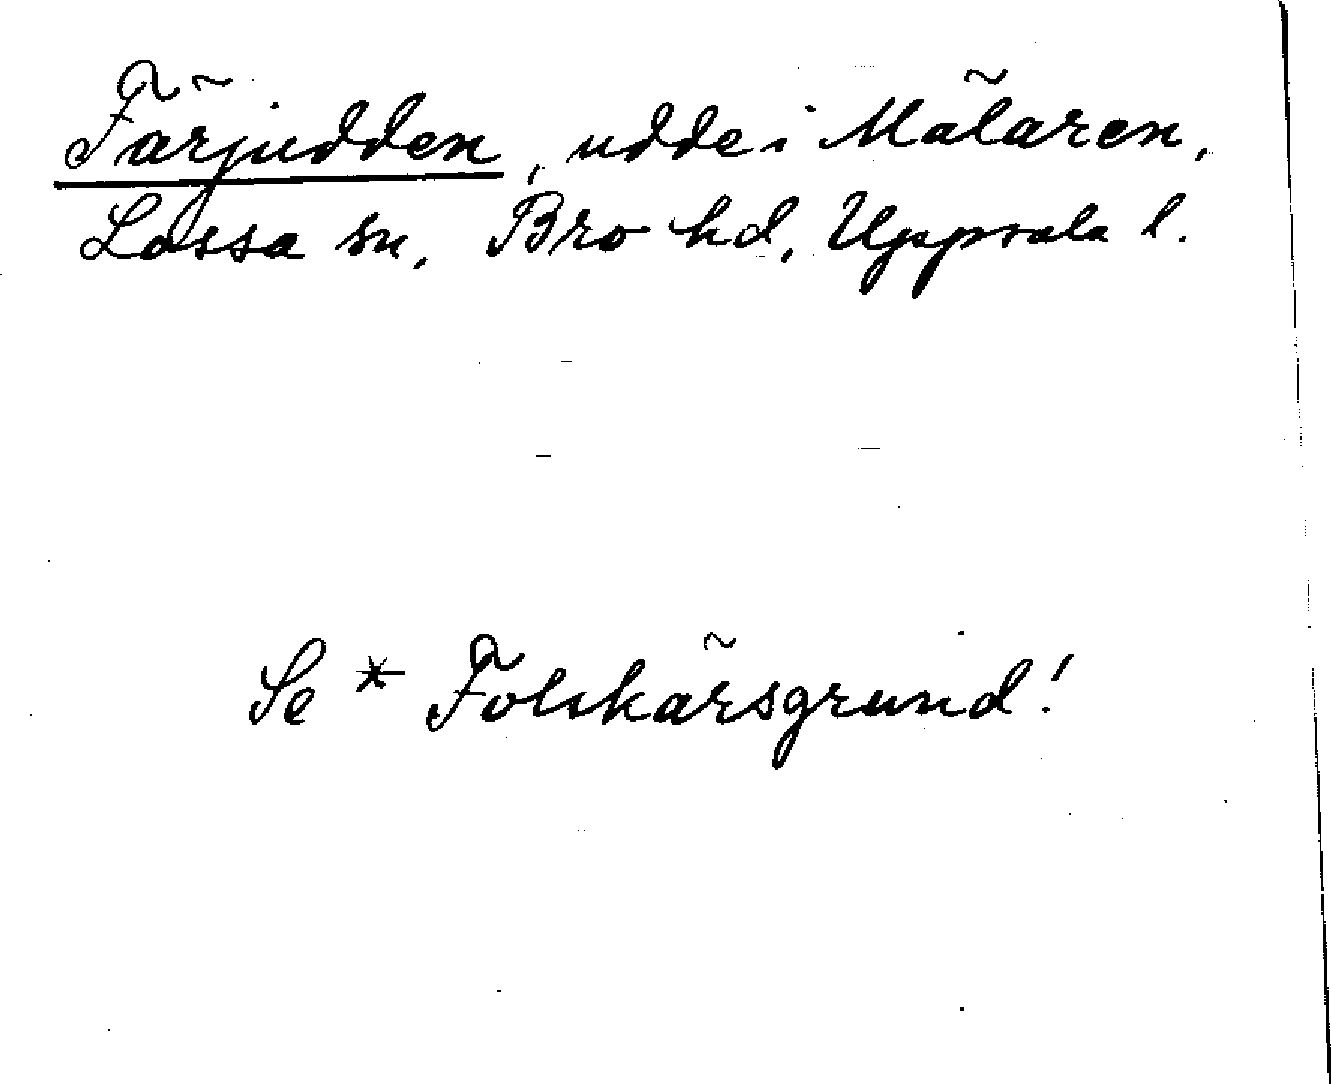 Färjudden, udde i Mälaren,
Låssa sn, Bro hd, Uppsala l.
Se * Folskärsgrund!